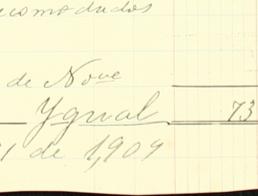 comodados
de Nove
Ygual 73
1 de 1,909